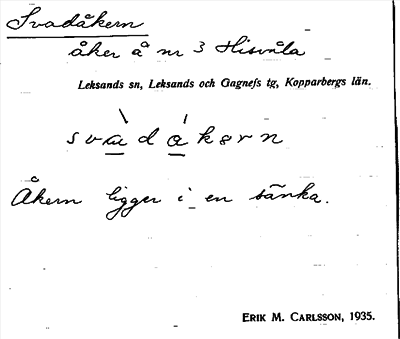 Svadåkern
åker å nr 3 Hisvåla
Leksands sn, Leksands och Gagnefs tg, Kopparbergs län.
Åkern ligger i en sänka.
ERIK M. CARLSSON, 1935.